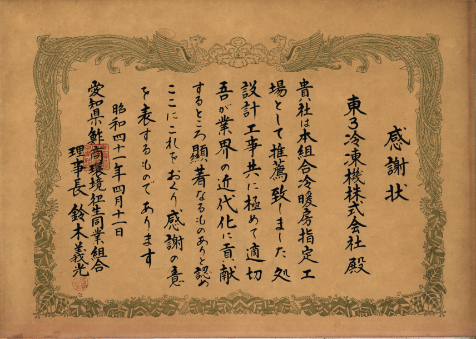 感謝状
東3冷凍機株式会社 殿
貴社は本組合冷暖房指定工
場として推薦致しました処
設計工事共に極めて適切
吾が業界の近代化に貢献
するところ顕著なるものありと認め
ここにこれをおくり感謝の意
を表するものであります
昭和四十一年四月十一日
愛知県鮓商環境衛生同業組合
理事長 鈴木義光